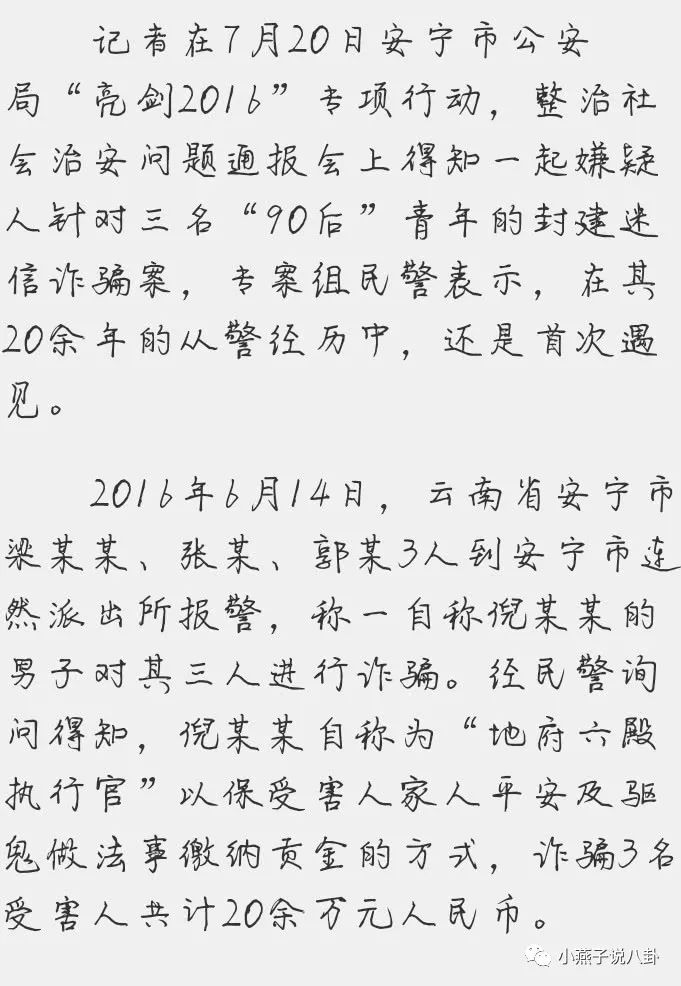 记者在7月20日安宁市公安
局“亮剑2016”专项行动，整治社
会治安问题通报会上得知一起嫌疑
人针对三名“90后”青年的封建迷
信诈骗案，专案组民警表示，在其
20余年的从警经历中，还是首次遇
见。
2016年6月14日，云南省安宁市
梁某某、张某、郭某3人到安宁市连
然派出所报警，称一自称倪某某的
男子对其三人进行诈骗。经民警询
问得知，倪某某自称为“地府六殿
执行官”以保受害人家人平安及驱
鬼做法事缴纳贡金的方式，诈骗3名
受害人共计20余万元人民币。
小燕子说八卦